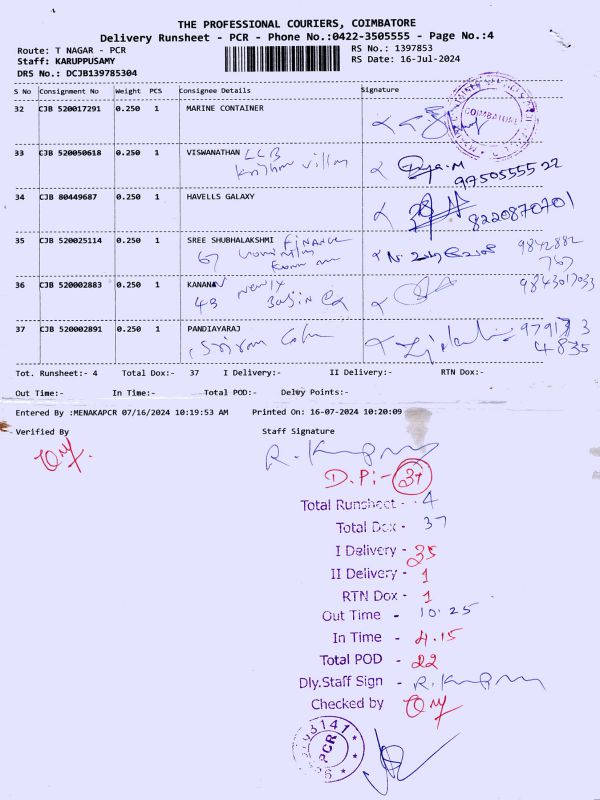 THE PROFESSIONAL COURIERS, COIMBATORE
Delivery Runsheet - PCR - Phone No.:0422-3505555 - Page No.:4
Route: T NAGAR - PCR
RS No.: 1397853
Staff: KARUPPUSAMY
RS Date: 16-Jul-2024
DRS No.: DCJB139785304
S No Consignment No Weight PCS Consignee Details Signature
32 CJB 520017291 0.250 1 MARINE CONTAINER
COIMBATORE
33 CJB 520050618 0.250 1 VISWANATHAN
9750555522
34 CJB 80449687 0.250 1 HAVELLS GALAXY
8220870701
35 CJB 520025114 0.250 1 SREE SHUBHALAKSHMI FINANCE
67
9842882
767
36 CJB 520002883 0.250 1 KANANAN
9843017033
37 CJB 520002891 0.250 1 PANDIAYARAJ
4835
Tot. Runsheet:- 4 Total Dox:- 37 I Delivery:- II Delivery:- RTN Dox:-
Out Time:- In Time:- Total POD:- Delvy Points:-
Entered By :MENAKAPCR 07/16/2024 10:19:53 AM Printed On: 16-07-2024 10:20:09
Verified By Staff Signature
D.P:- 37
Total Runsheet - 4
Total Dox - 37
I Delivery - 35
II Delivery - 1
RTN Dox - 1
Out Time - 10.25
In Time - 4.15
Total POD - 22
Dly.Staff Sign -
Checked by
PCR